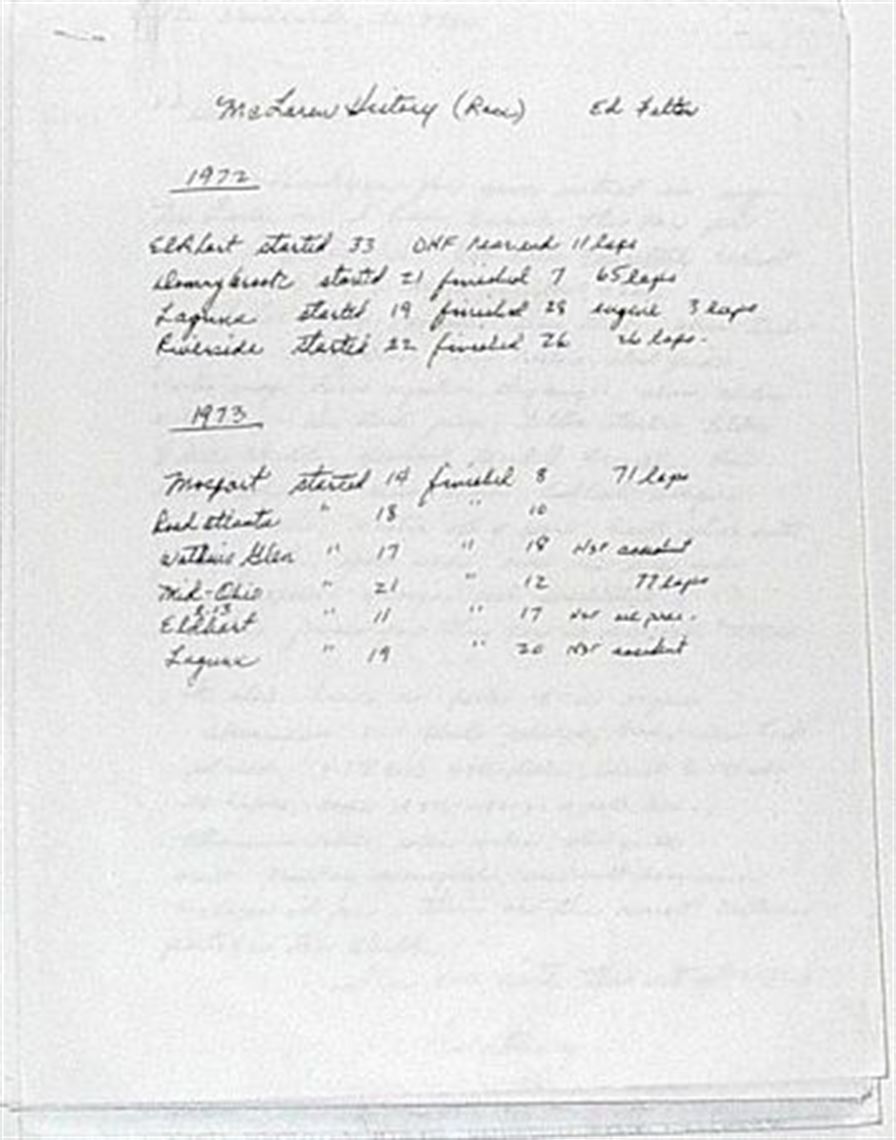 McLaren History (Race) Ed Felter
1972
Elkhart started 33 DNF rearend 11 laps
Donnybrook started 21 finished 7 65 laps
Laguna started 19 finished 28 engine 3 laps
Riverside started 22 finished 26 26 laps.
1973
Mosport started 14 finished 8 71 laps
Road Atlanta " 18 " 10
Watkins Glen " 17 " 18 Not accident
Mid-Ohio " 21 " 12 77 laps
Elkhart " 11 " 17 Not oil pres.
Laguna " 19 " 20 Not accident